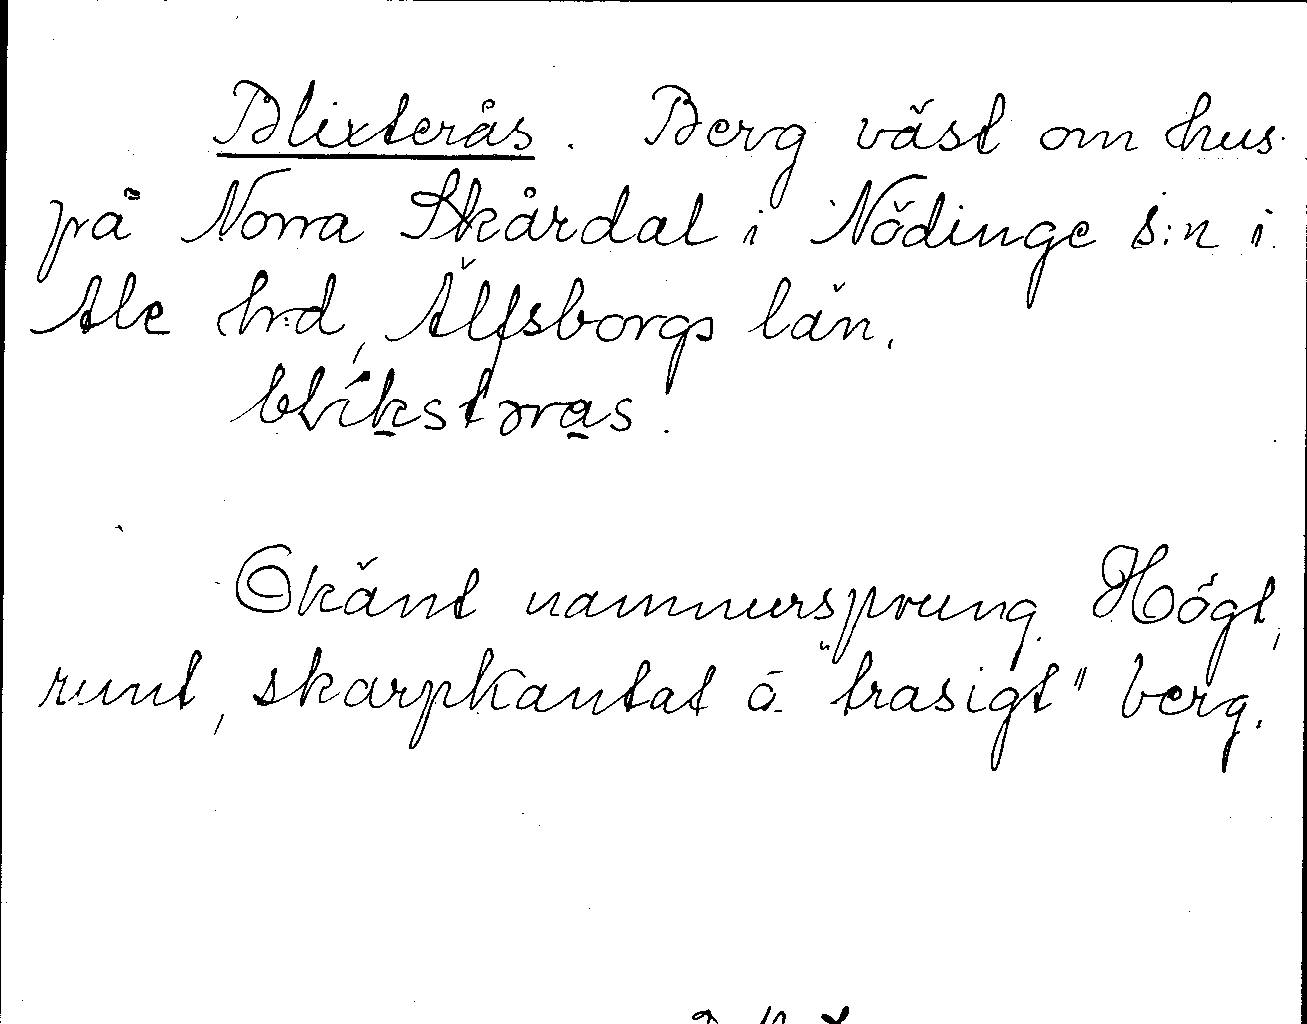 Blixterås. Berg väst om hus
på Norra Skårdal i Nödinge s:n i
Ale hrd, Älfsborgs län.
blíkstəras.
Okänt namnursprung. Högt,
runt, skarpkantat o. "trasigt" berg.